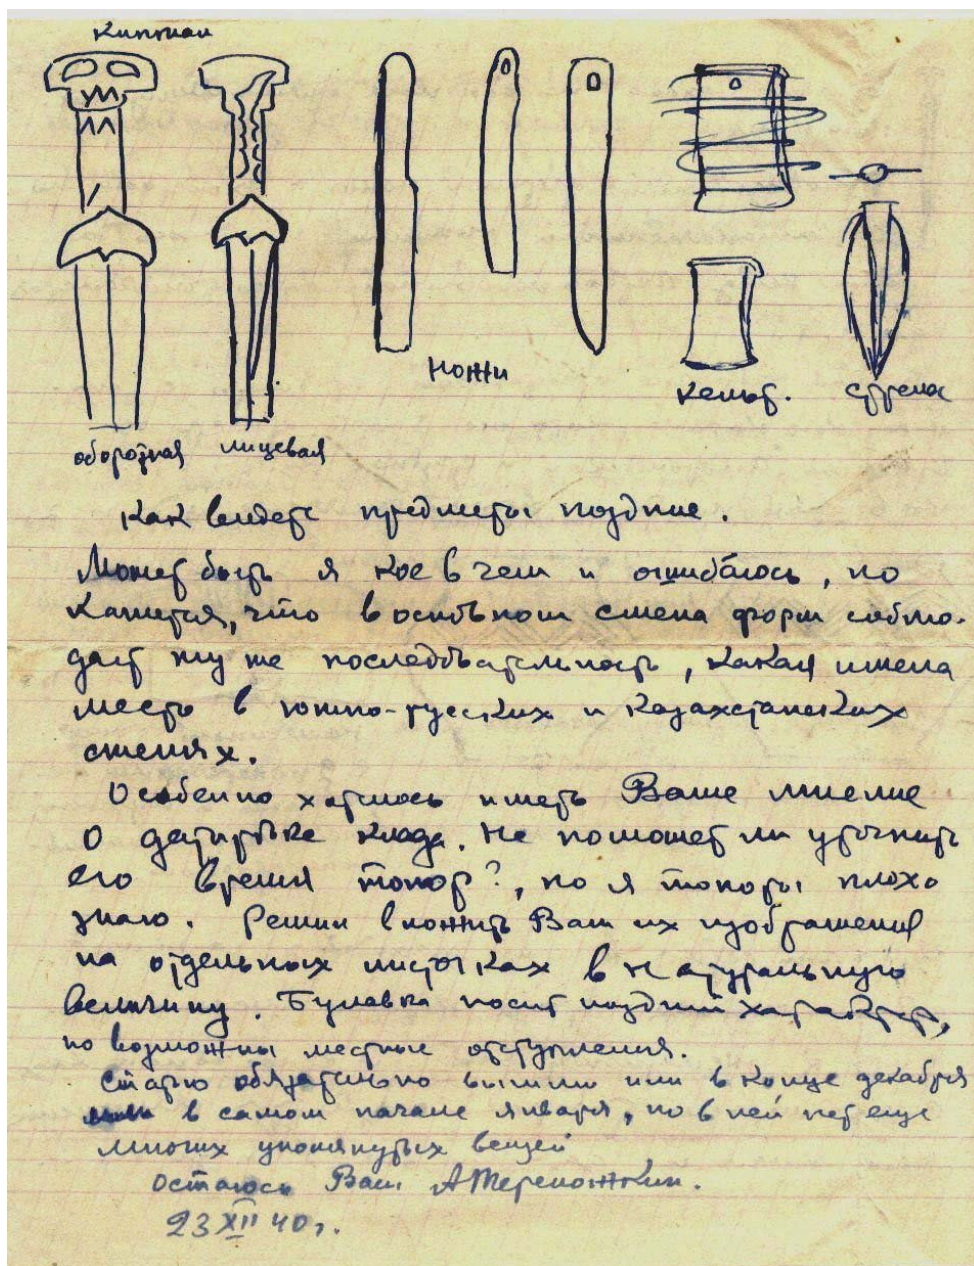 Кинжал
оборотная лицевая
ножи
кельт. стрела
Как видете предметы поздние.
Может быть я кое в чем и ошибаюсь, но
кажется, что в основном смена форм соблю-
дает ту же последовательность, какая имела
место в южно-русских и Казахстанских
степях.
Особенно хотелось иметь Ваше мнение
о датировке клада. Не поможет ли уточнить
его время топор?, но я топоры плохо
знаю. Решил вложить Вам их изображения
на отдельных листочках в натуральную
величину. Булавка носит поздний характер,
но возможны местные отступления.
Статью обязательно вышлю или в конце декабря
или в самом начале января, но в ней нет еще
многих упомянутых вещей
остаюсь Ваш АТереножкин.
23 XII 40 г.